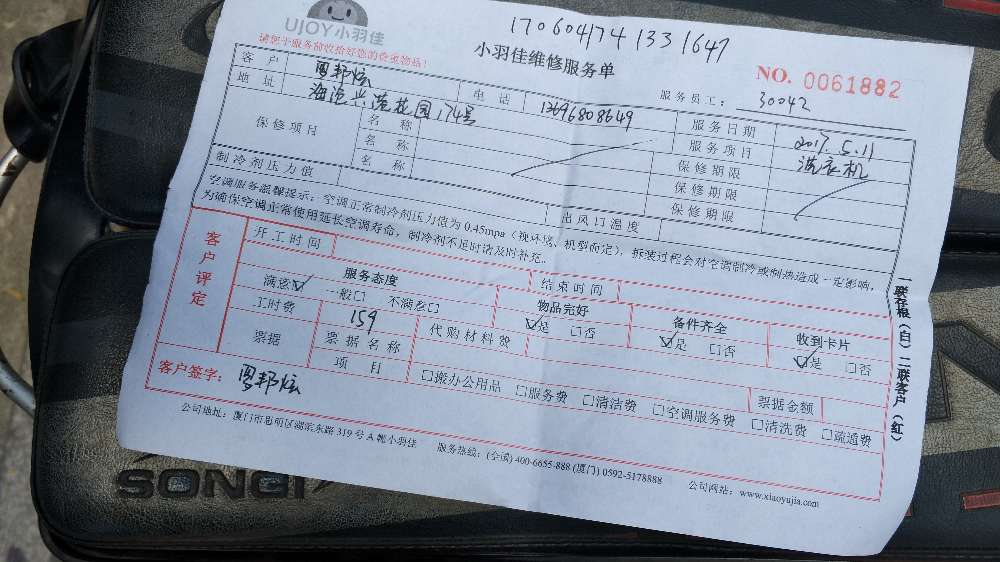 UJOY小羽佳
170604174 1331647
请您于服务前收拾好您的贵重物品!
小羽佳维修服务单
NO. 0061882
服务员工: 30042
客户 周邦炫 电话 13696808649 服务日期 2017.5.11
地址 海沧兴港花园174号 服务项目 洗衣机
保修项目 名称 保修期限
名称 保修期限
名称 保修期限
制冷剂压力值 出风口温度
空调服务温馨提示:空调正常制冷剂压力值为0.45mpa(视环境、机型而定),拆装过程会对空调制冷或制热造成一定影响,
为确保空调正常使用延长空调寿命,制冷剂不足时请及时补充。
客户评定
开工时间 结束时间
服务态度 物品完好 备件齐全 收到卡片
满意☑ 一般□ 不满意□ ☑是 □否 ☑是 □否 ☑是 □否
工时费 159 代购材料费
票据 票据名称 票据金额
项目 □搬办公用品 □服务费 □清洁费 □空调服务费 □清洗费 □疏通费
客户签字: 周邦炫
公司地址:厦门市思明区湖滨东路319号A幢小羽佳 服务热线:(全国) 400-6655-888 (厦门) 0592-5178888 公司网站:www.xiaoyujia.com
一联存根(白) 二联客户(红)
SONGI